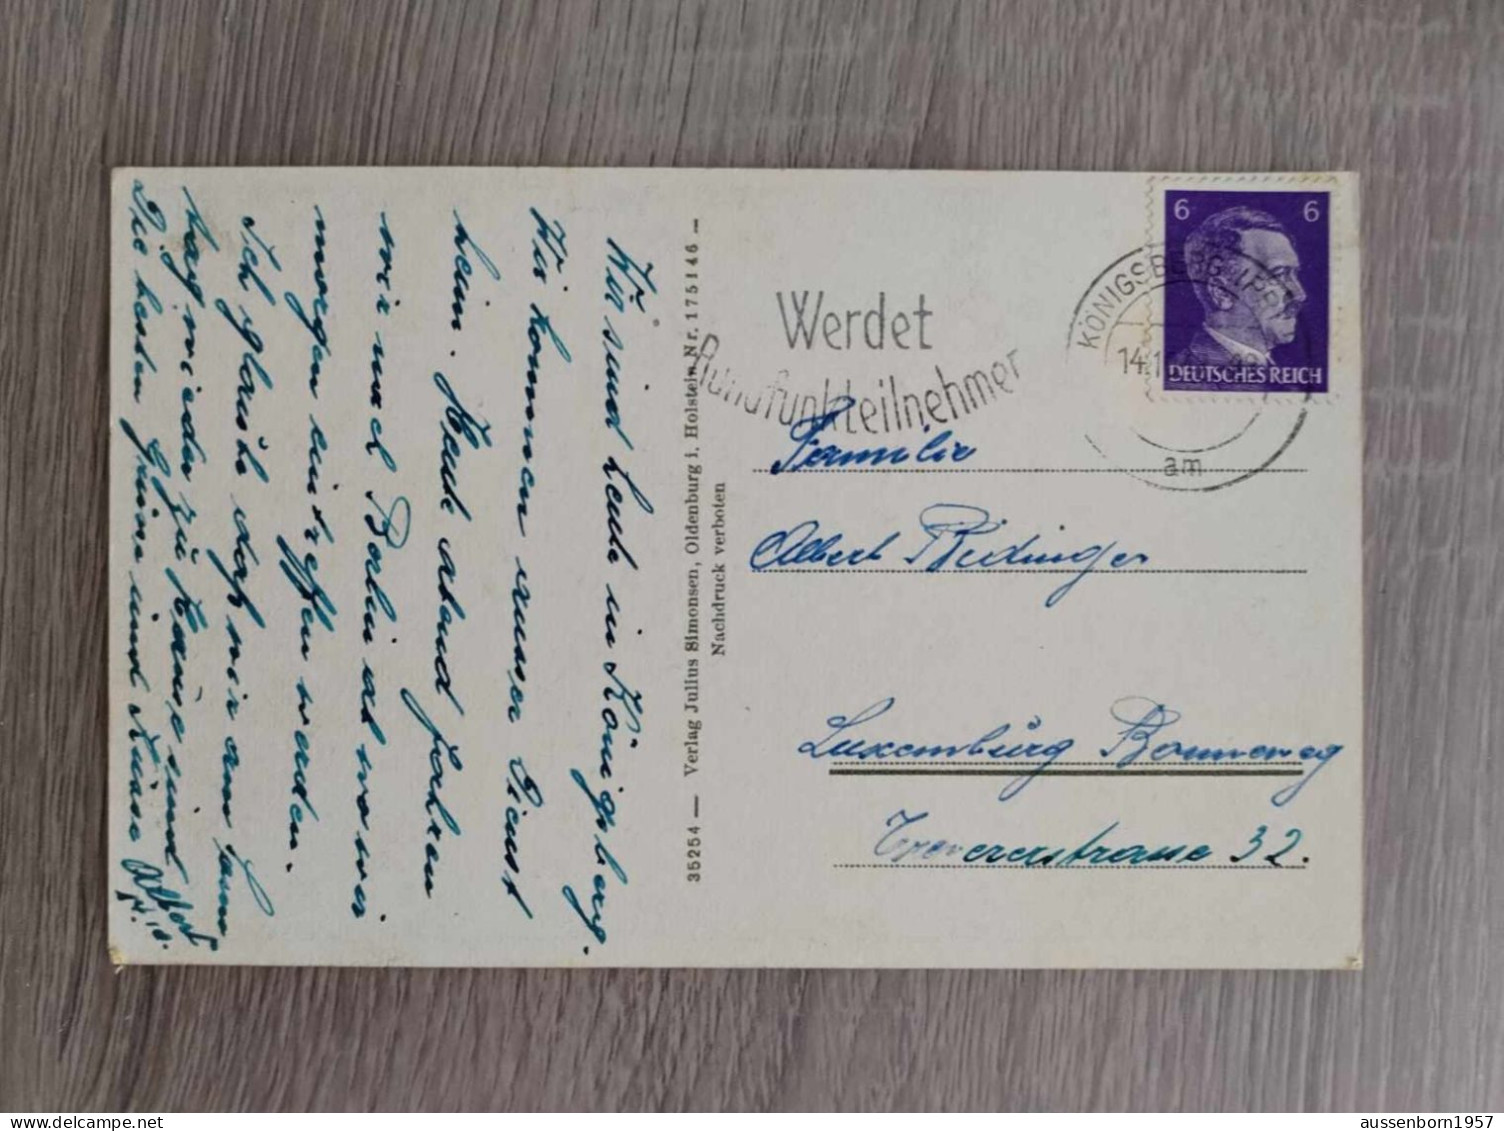 Wir sind heute in Königsberg.
Wir kommen unser Dienst
heim. Heute abend fahren
wir nach Berlin ab wo wir
morgen eintreffen werden.
Ich glaube daß wir am Sams
tag wieder zu Hause sind
Die besten Grüsse und Küsse
14.10.
35254 — Verlag Julius Simonsen, Oldenburg i. Holstein Nr. 175146 —
Nachdruck verboten
Werdet
Rundfunkteilnehmer
KÖNIGSBERG (PR)
14.1
am
6 6
DEUTSCHES REICH
Familie
Albert Bidinger
Luxemburg Bonneweg
Trevererstrasse 32.
delcampe.net
aussenborn1957